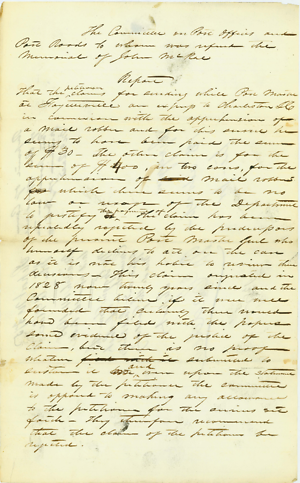 The Committee on Post Offices and
Post Roads to whom was referred the
Memorial of John McRee
Report
petitioner
That the claims for sending while Post Master
at Fayetteville an express to Charleston SC
in connexion with the apprehension of
a Mail robber and for this service he
seems to have been paid the sum
of $30. The other claim is for the
sum of $400 for two cons for the
apprehension of mail robbers
for which there seems to be no
law or usage of the Department
to justify the payment of The claim has been
repeatedly rejected by the predecessors
of the present Post Master Genl who
himself declines to act on the case
as it is not his practice to review their
decisions - This claim originated in
1828 now twenty years since and the
Committee believe if it were well
founded that certainly there would
have been filed with the papers
some evidence of the justice of the
claim, but there is no proof
whatever submitted to
sustain it and even upon the statement
made by the petitioner the committee
is opposed to making any allowance
to the petitioner for the services set
forth - They therefore recommend
that the claim of the petitioner be
rejected.